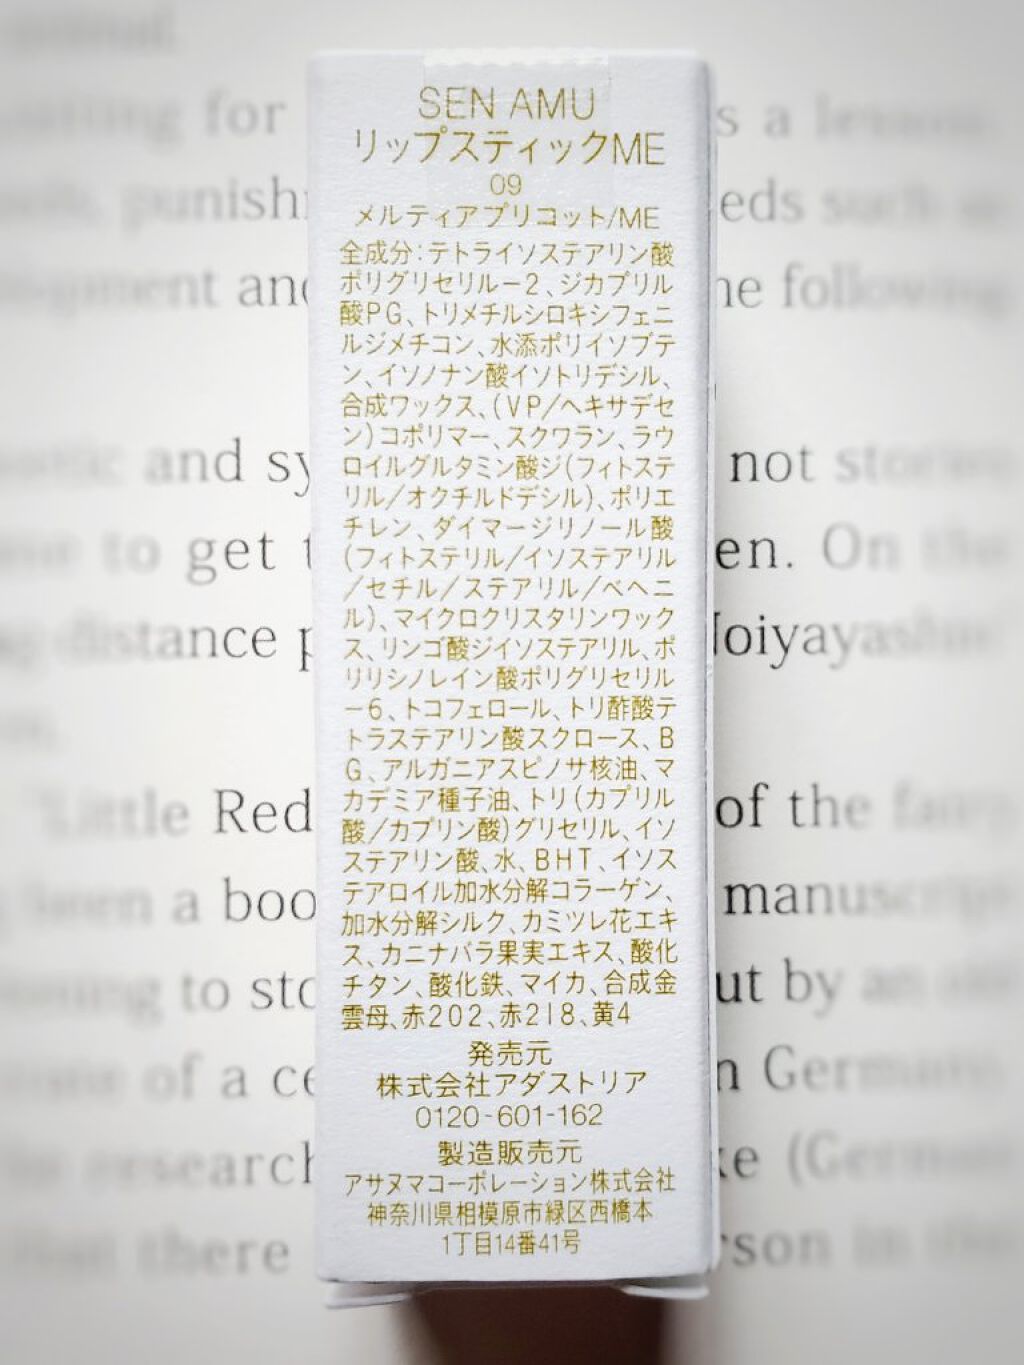 SEN AMU
リップスティックME
09
メルティアプリコット/ME
全成分:テトライソステアリン酸
ポリグリセリル-2、ジカプリル
酸PG、トリメチルシロキシフェニ
ルジメチコン、水添ポリイソブテ
ン、イソノナン酸イソトリデシル、
合成ワックス、(VP/ヘキサデセ
ン)コポリマー、スクワラン、ラウ
ロイルグルタミン酸ジ(フィトステ
リル/オクチルドデシル)、ポリエ
チレン、ダイマージリノール酸
(フィトステリル/イソステアリル
/セチル/ステアリル/ベヘニ
ル)、マイクロクリスタリンワック
ス、リンゴ酸ジイソステアリル、ポ
リリシノレイン酸ポリグリセリル
-6、トコフェロール、トリ酢酸テ
トラステアリン酸スクロース、B
G、アルガニアスピノサ核油、マ
カデミア種子油、トリ(カプリル
酸/カプリン酸)グリセリル、イソ
ステアリン酸、水、BHT、イソス
テアロイル加水分解コラーゲン、
加水分解シルク、カミツレ花エキ
ス、カニナバラ果実エキス、酸化
チタン、酸化鉄、マイカ、合成金
雲母、赤202、赤218、黄4
発売元
株式会社アダストリア
0120-601-162
製造販売元
アサヌマコーポレーション株式会社
神奈川県相模原市緑区西橋本
1丁目14番41号
for s a lesson
punish eds such as
and he following
and sy not stories
to get en. On the
distance oiyayashi
Little Red of the fairy
been a boo manuscript
to sto ut by an
of a ce n German
research ke (German
that there rson in